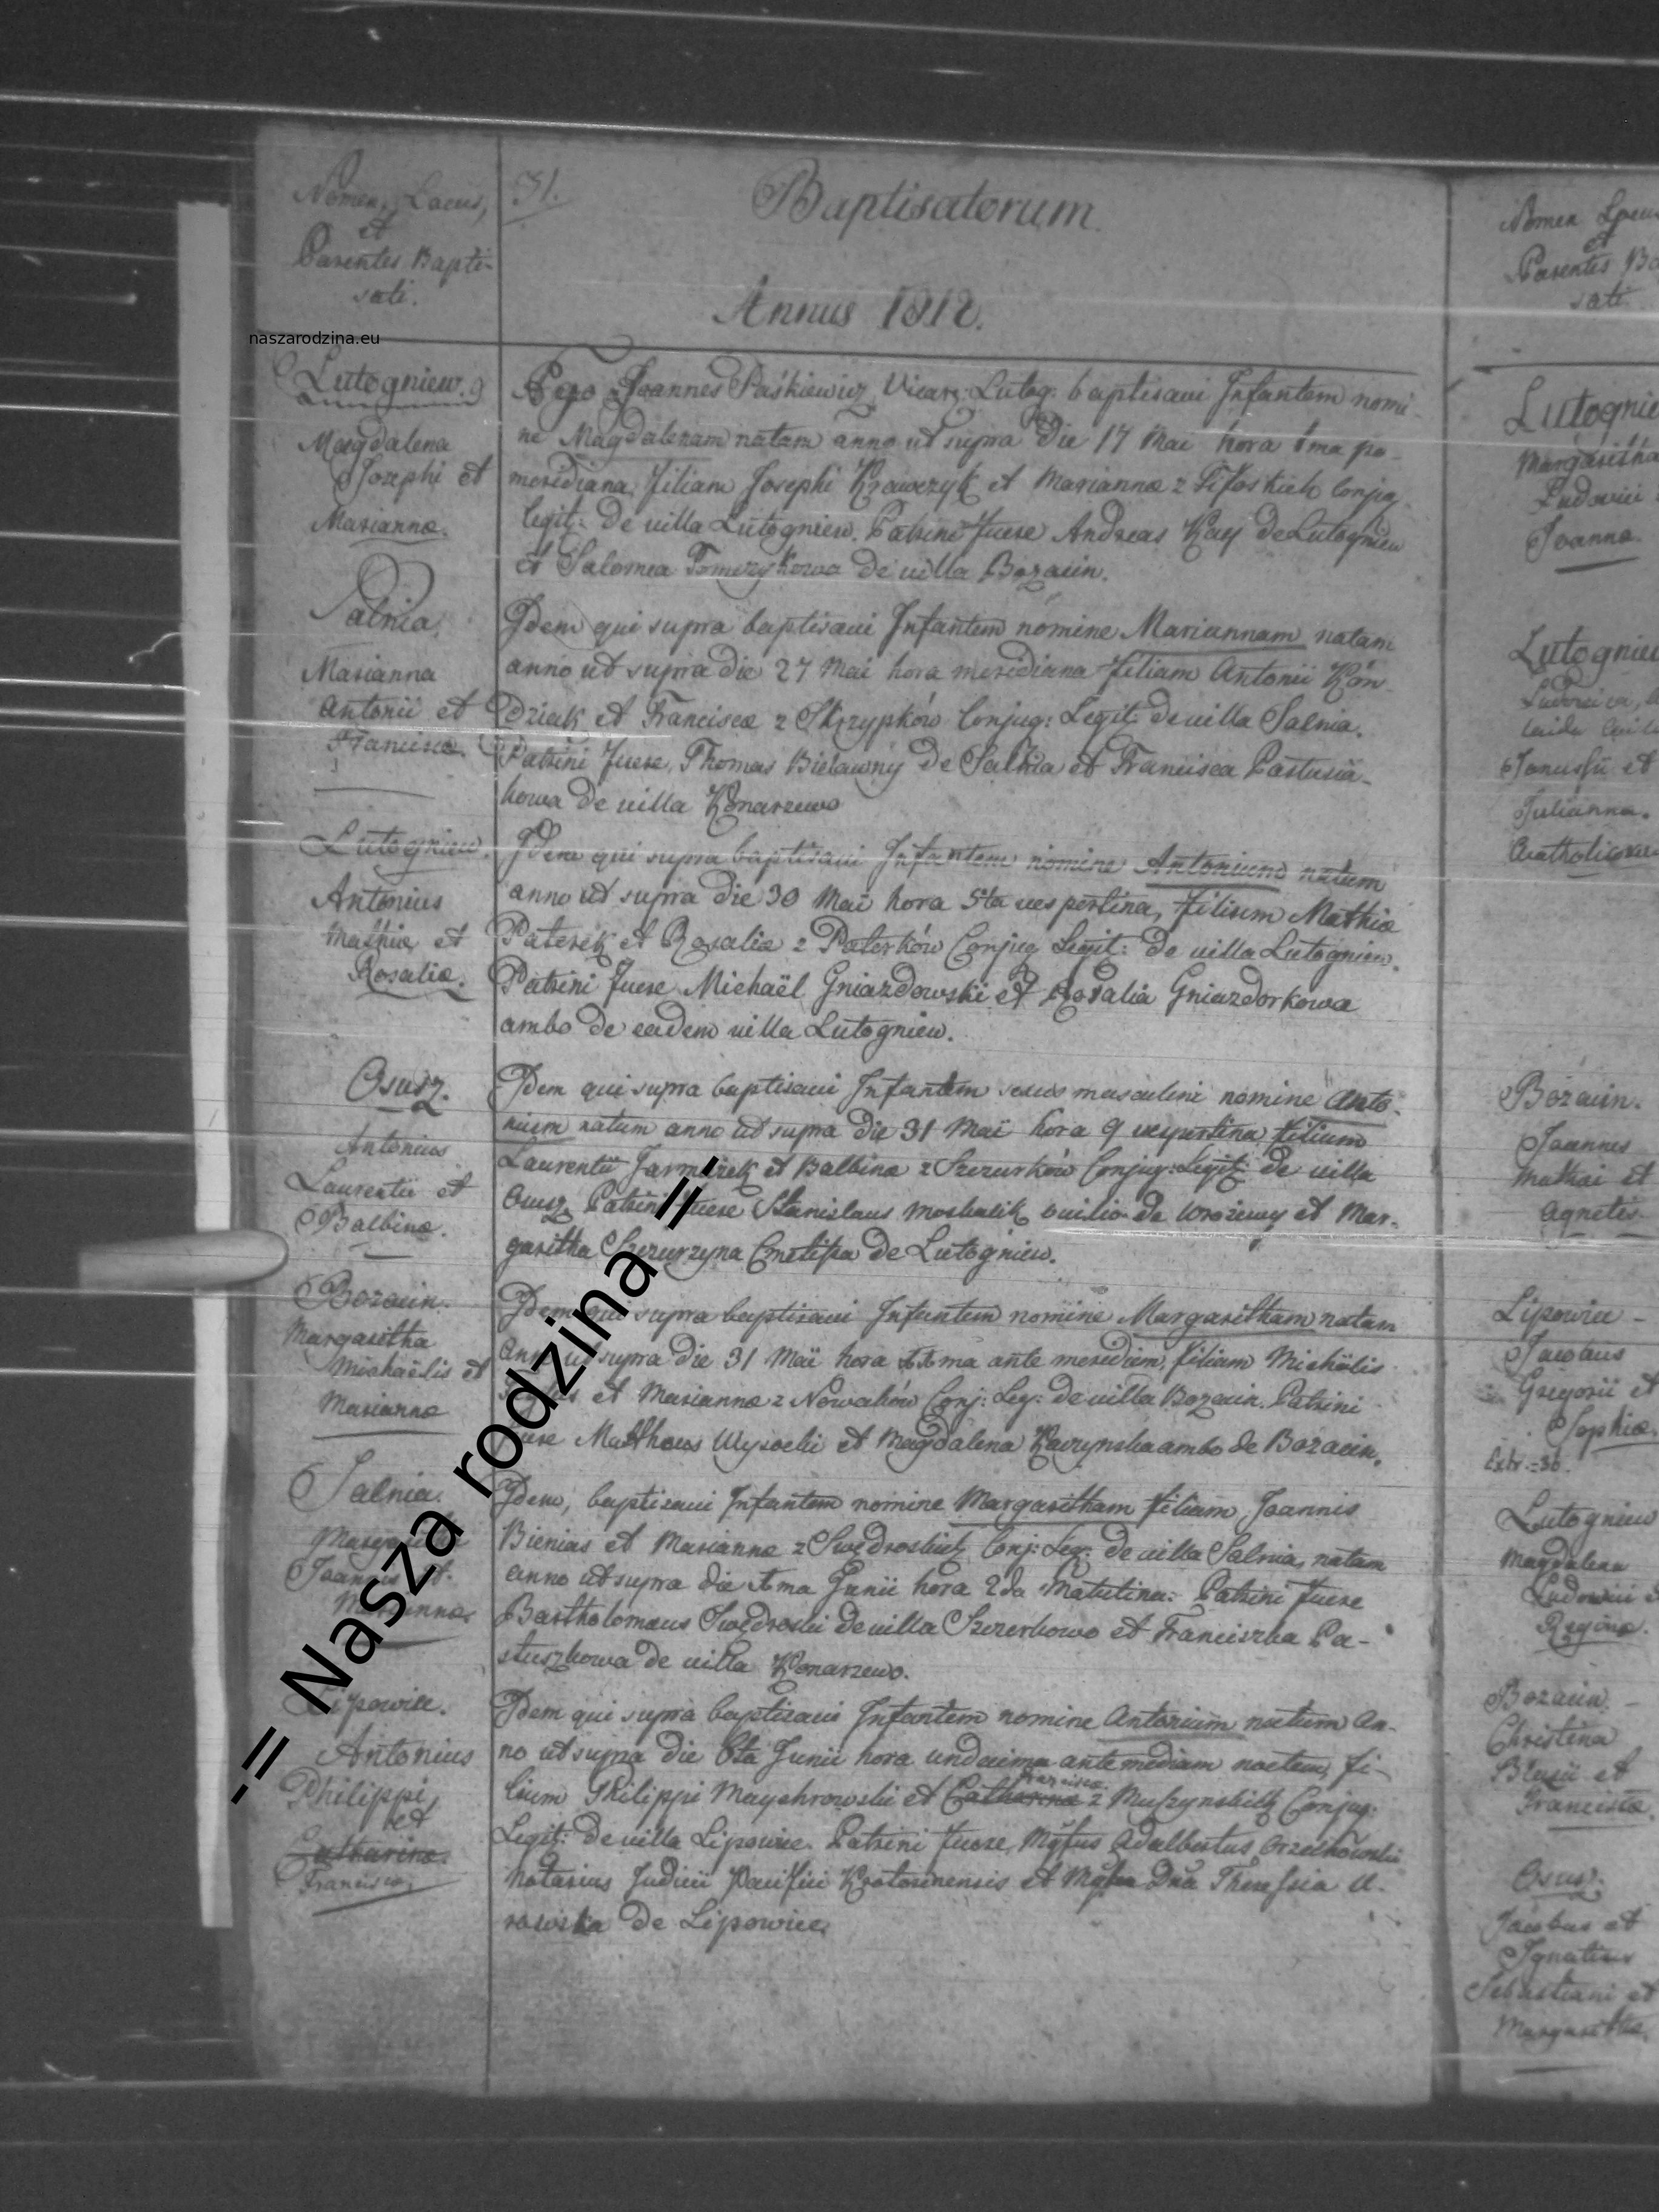 Nomen, Locus,
et
Parentes Bapti-
sati.
31.
Baptisatorum.
Annus 1812.
naszarodzina.eu
Lutogniew.
Magdalena
Josephi et
Mariannæ.
Ego Joannes Paśkiewicz Vicar: Lutog: baptisavi Infantem nomi-
ne Magdalenam natam anno ut supra die 17 Mai hora 1ma po-
meridiana filiam Josephi Krawczyk et Mariannæ z Conjug.
legit: de villa Lutogniew. Patrini fuere Andreas Kay de Lutogniew
et Salomea Tomczykowa de villa Bozacin.
Salnia.
Marianna
Antonii et
Franciscæ.
Idem qui supra baptisavi Infantem nomine Mariannam natam
anno ut supra die 27 Mai hora meridiana filiam Antonii Kon-
dziek et Franciscæ z Skrzypków Conjug: Legit: de villa Salnia.
Patrini fuere, Thomas Bielawny de Salnia et Francisca Pastusia-
kowa de villa Konarzewo
Lutogniew.
Antonius
Mathiæ et
Rosaliæ.
Idem qui supra baptisavi Infantem nomine Antonium natum
anno ut supra die 30 Mai hora 5ta vespertina, filium Mathiæ
Paterek et Rosaliæ z Paterków Conjug Legit: de villa Lutogniew.
Patrini fuere Michaël Gniazdowski et Rosalia Gniazdorkowa
ambo de eadem villa Lutogniew.
Osusz.
Antonius
Laurentii et
Balbinæ.
Idem qui supra baptisavi Infantem sexus masculini nomine Anto-
nium natum anno ut supra die 31 Mai hora 9 vespertina filium
Laurentii et Balbinæ z Szczurków Conjug: Legit: de villa
Osusz. Patrini fuere Stanislaus Moskalik de Wrozewy et Mar-
garitha Szczurzyna de Lutogniew.
Bozacin.
Margaritha
Michaëlis et
Mariannæ
Idem qui supra baptisavi Infantem nomine Margaritham natam
Anno ut supra die 31 Mai hora ma ante meridiem, filiam Michälis
et Mariannæ z Nowaków Conj: Leg: de villa Bozacin. Patrini
fuere Mathæus Wysocki et Magdalena Kaczynska ambo de Bozacin.
Salnia.
Margaritha
Joannis et
Mariannæ
Idem, baptisavi Infantem nomine Margaritham filiam Joannis
Bienias et Mariannæ z Swędroskich Conj: Leg: de villa Salnia, natam
anno ut supra die 1ma Junii hora 2da Matutina: Patrini fuere
Bartholomæus Swędroski de villa Szczerkowo et Franciszka Pa-
stuszkowa de villa Konarzewo.
Lipowiec.
Antonius
Philippi
et
Catharinæ.
Franciscæ
Idem qui supra baptisavi Infantem nomine Antonium natum An-
no ut supra die 6ta Junii hora undecima ante mediam noctem, fi-
Franciscæ
lium Philippi Maychrowski et Catharinæ z Muszynskich Conjug:
Legit: de villa Lipowiec. Patrini fuere, Adalbertus Orzechowski
Notarius Judicii Pacifici Krotosinensis et Thressia U-
rowska de Lipowiec.
-= Nasza rodzina =-
Nomen Locus
et
Parentes Ba
sati
Lutognie
Margaritha
Ludovici
Joannæ.
Lutogniew
Julianna.
Bozacin.
Joannes
Mathæi et
Agnetis.
Lipowiec -
Jacobus
Gregorii et
Sophiæ.
Lutogniew
Magdalena
Ludovici e
Reginæ.
Bozacin. -
Christina
Blasii et
Franciscæ.
Osusz.
Jacobus et
Ignatius
Sebastiani et
Margarithæ.